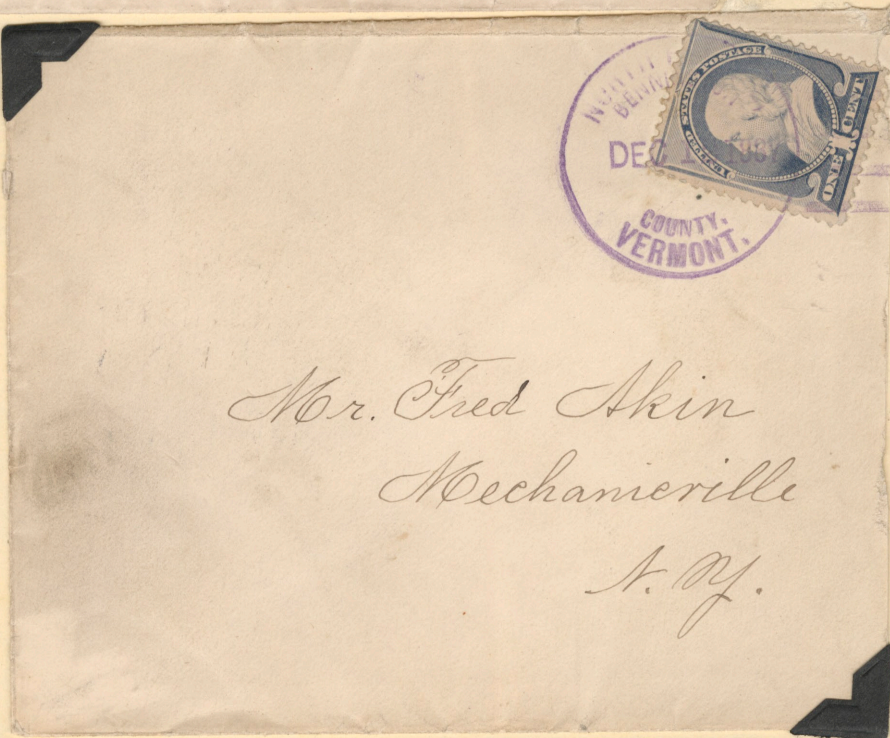 NORTH
BENN
DEC 1 1887
COUNTY.
VERMONT.
UNITED STATES POSTAGE
ONE 1 CENT
Mr. Fred Akin
Mechanicville
N. Y.